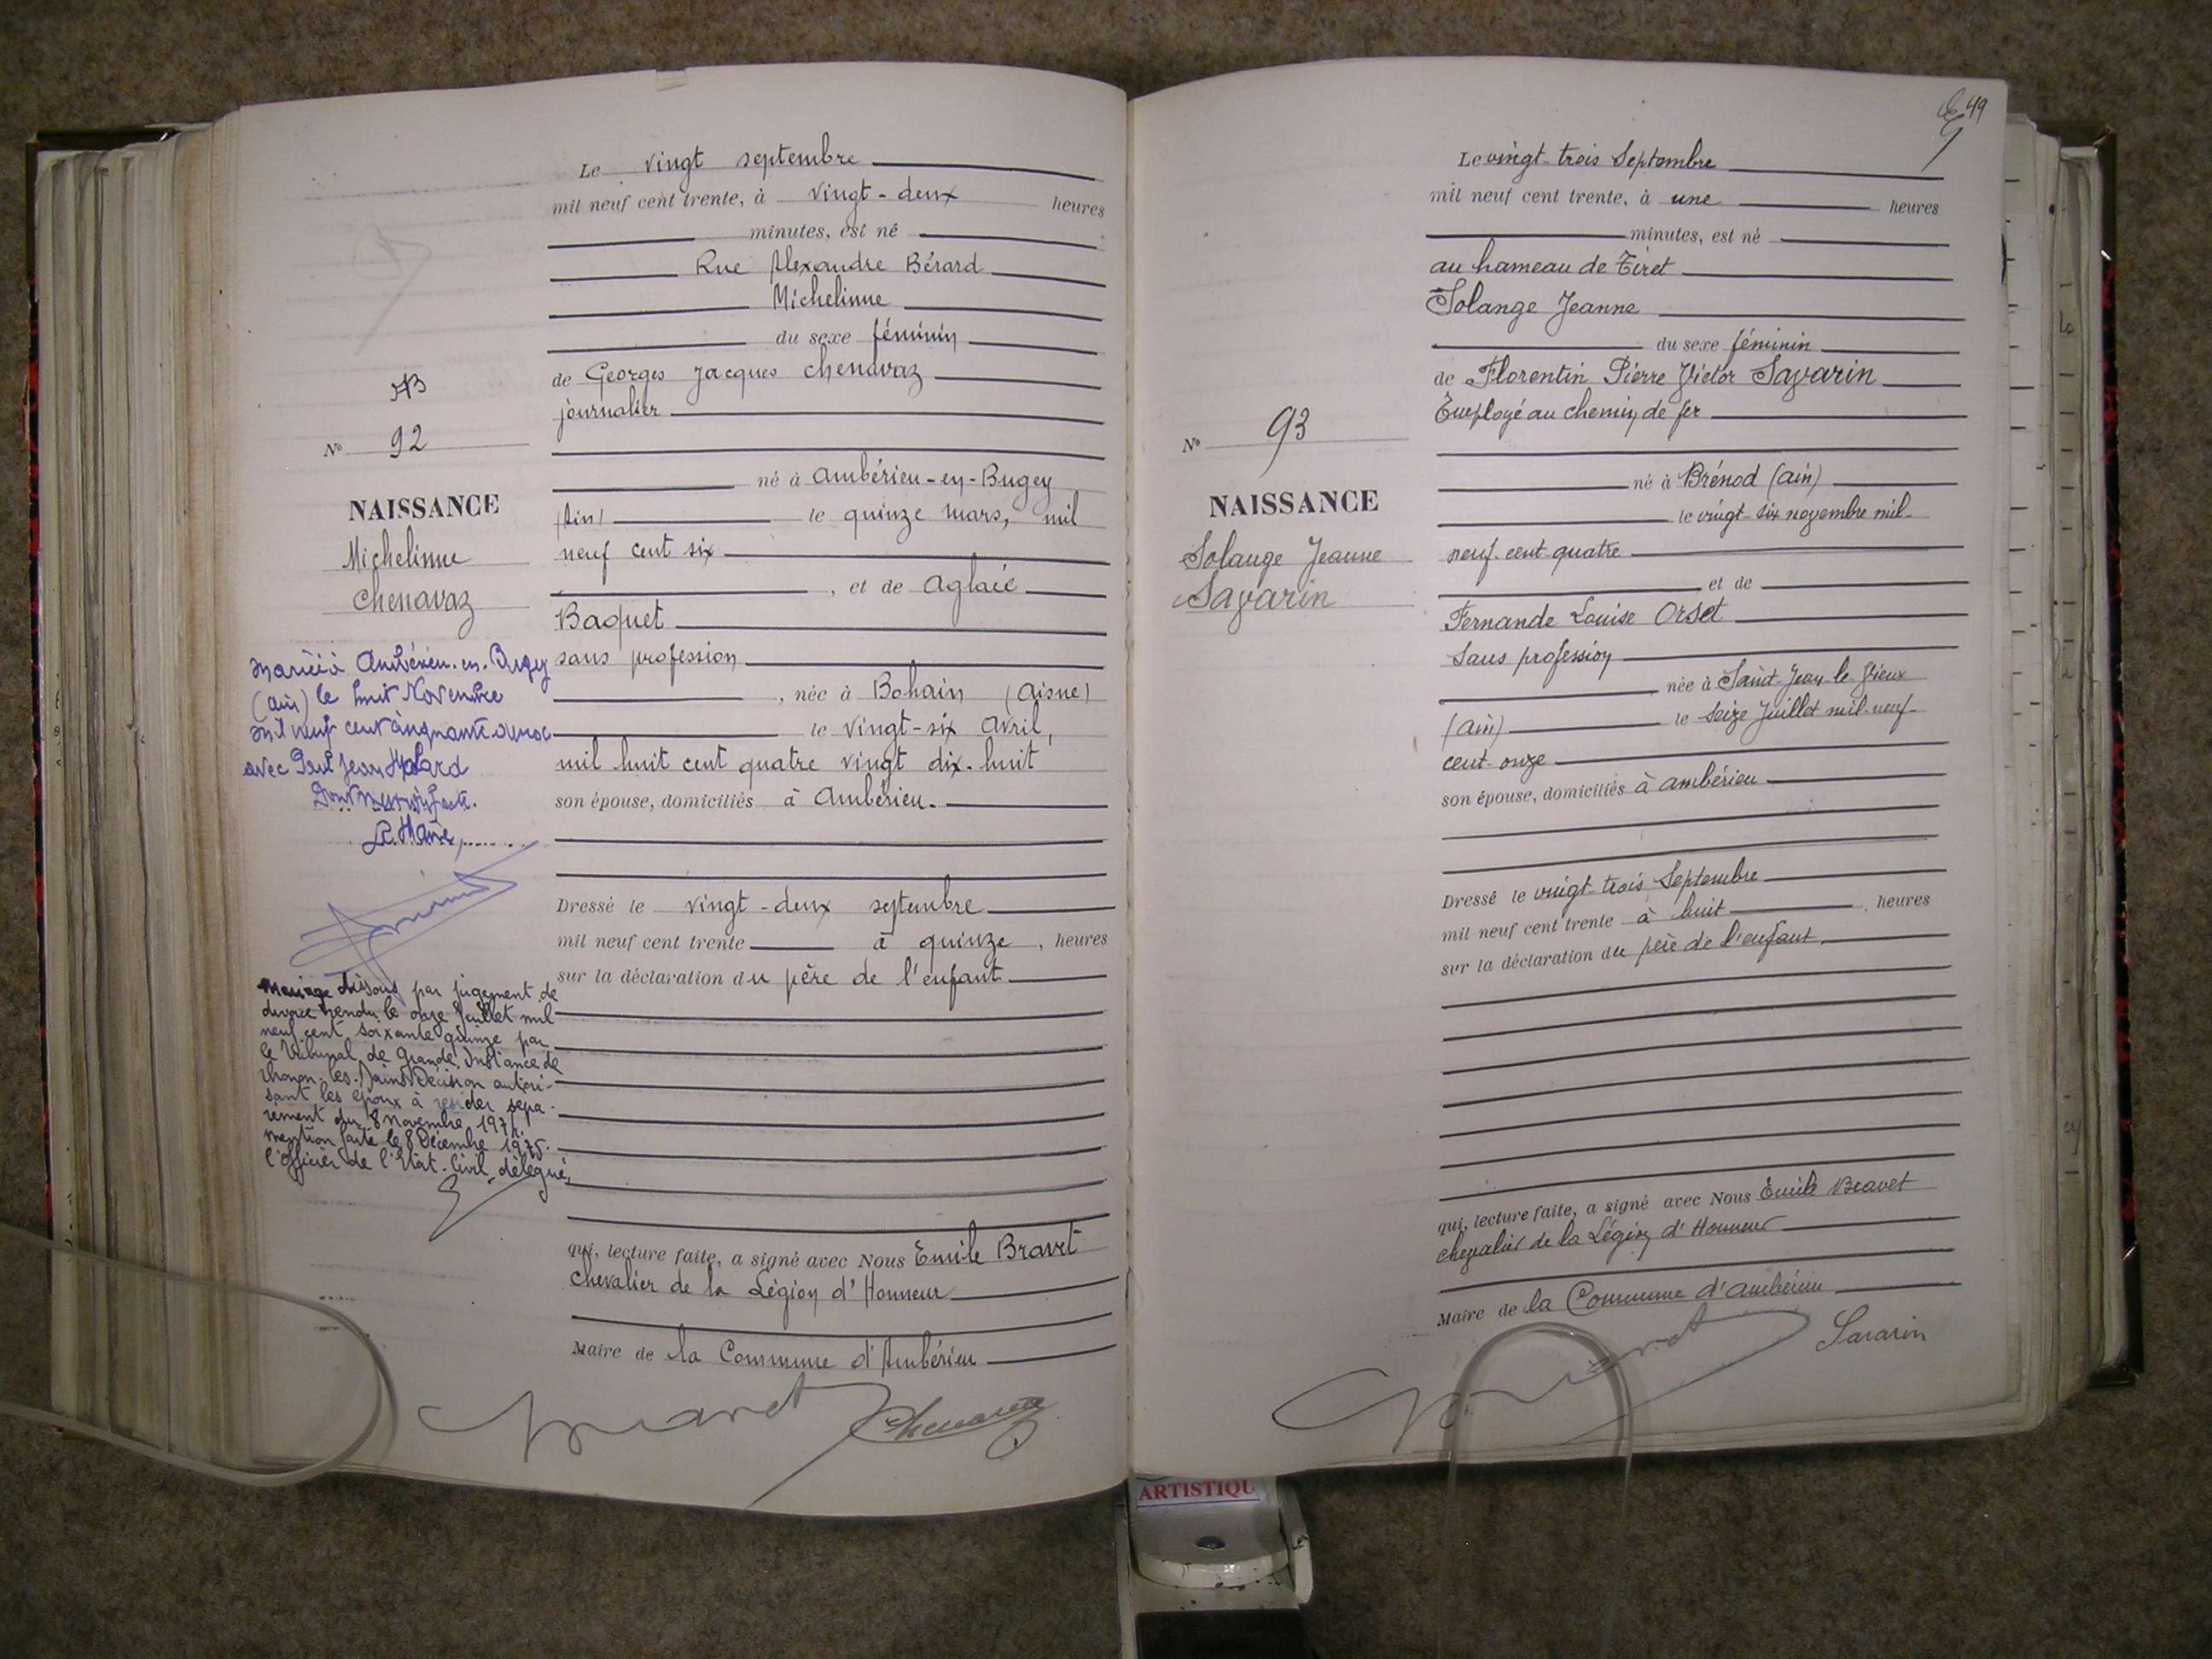 Le vingt septembre
mil neuf cent trente, à vingt-deux heures
minutes, est né
Rue Alexandre Bérard
Michelinne
du sexe féminin
de Georges Jacques Chenavaz
journalier
né à Ambérieu-en-Bugey
(Ain) le quinze mars, mil
neuf cent six
, et de Aglaé
Baquet
sans profession
, née à Bohain (Aisne)
le vingt-six Avril,
mil huit cent quatre vingt dix-huit
son épouse, domiciliés à Ambérieu.
Dressé le vingt-deux septembre
mil neuf cent trente à quinze, heures
sur la déclaration du père de l'enfant
qui, lecture faite, a signé avec Nous Emile Bravet
Chevalier de la Légion d'Honneur
Maire de la Commune d'Ambérieu
Bravet Chenavaz
N° 92
NAISSANCE
Michelinne
Chenavaz
Mariée à Ambérieu-en-Bugey
(Ain) le huit Novembre
mil neuf cent cinquante
avec Paul Jean
Le Maire,
Mariage dissous par jugement de
divorce rendu le onze Juillet mil
neuf cent soixante quinze par
le Tribunal de Grande Instance de
Thonon-les-Bains Décision autori-
sant les époux à résider sépa-
rément du 8 Novembre 1974.
Mention faite le 8 Décembre 1975.
l'officier de l'Etat-Civil délégué,
49
Le vingt-trois Septembre
mil neuf cent trente, à une heures
minutes, est né
au hameau de Tiret
Solange Jeanne
du sexe féminin
de Florentin Pierre Victor Savarin
Employé au chemin de fer
né à Brénod (Ain)
le vingt-six novembre mil-
neuf-cent-quatre
et de
Fernande Louise Orset
Sans profession
née à Saint-Jean-le-Vieux
(Ain) le seize Juillet mil-neuf-
cent-onze
son épouse, domiciliés à Ambérieu
Dressé le vingt-trois Septembre
mil neuf cent trente à huit, heures
sur la déclaration du père de l'enfant
qui, lecture faite, a signé avec Nous Emile Bravet
chevalier de la Légion d'Honneur
Maire de la Commune d'Ambérieu
Bravet Savarin
N° 93
NAISSANCE
Solange Jeanne
Savarin
ARTISTIQU